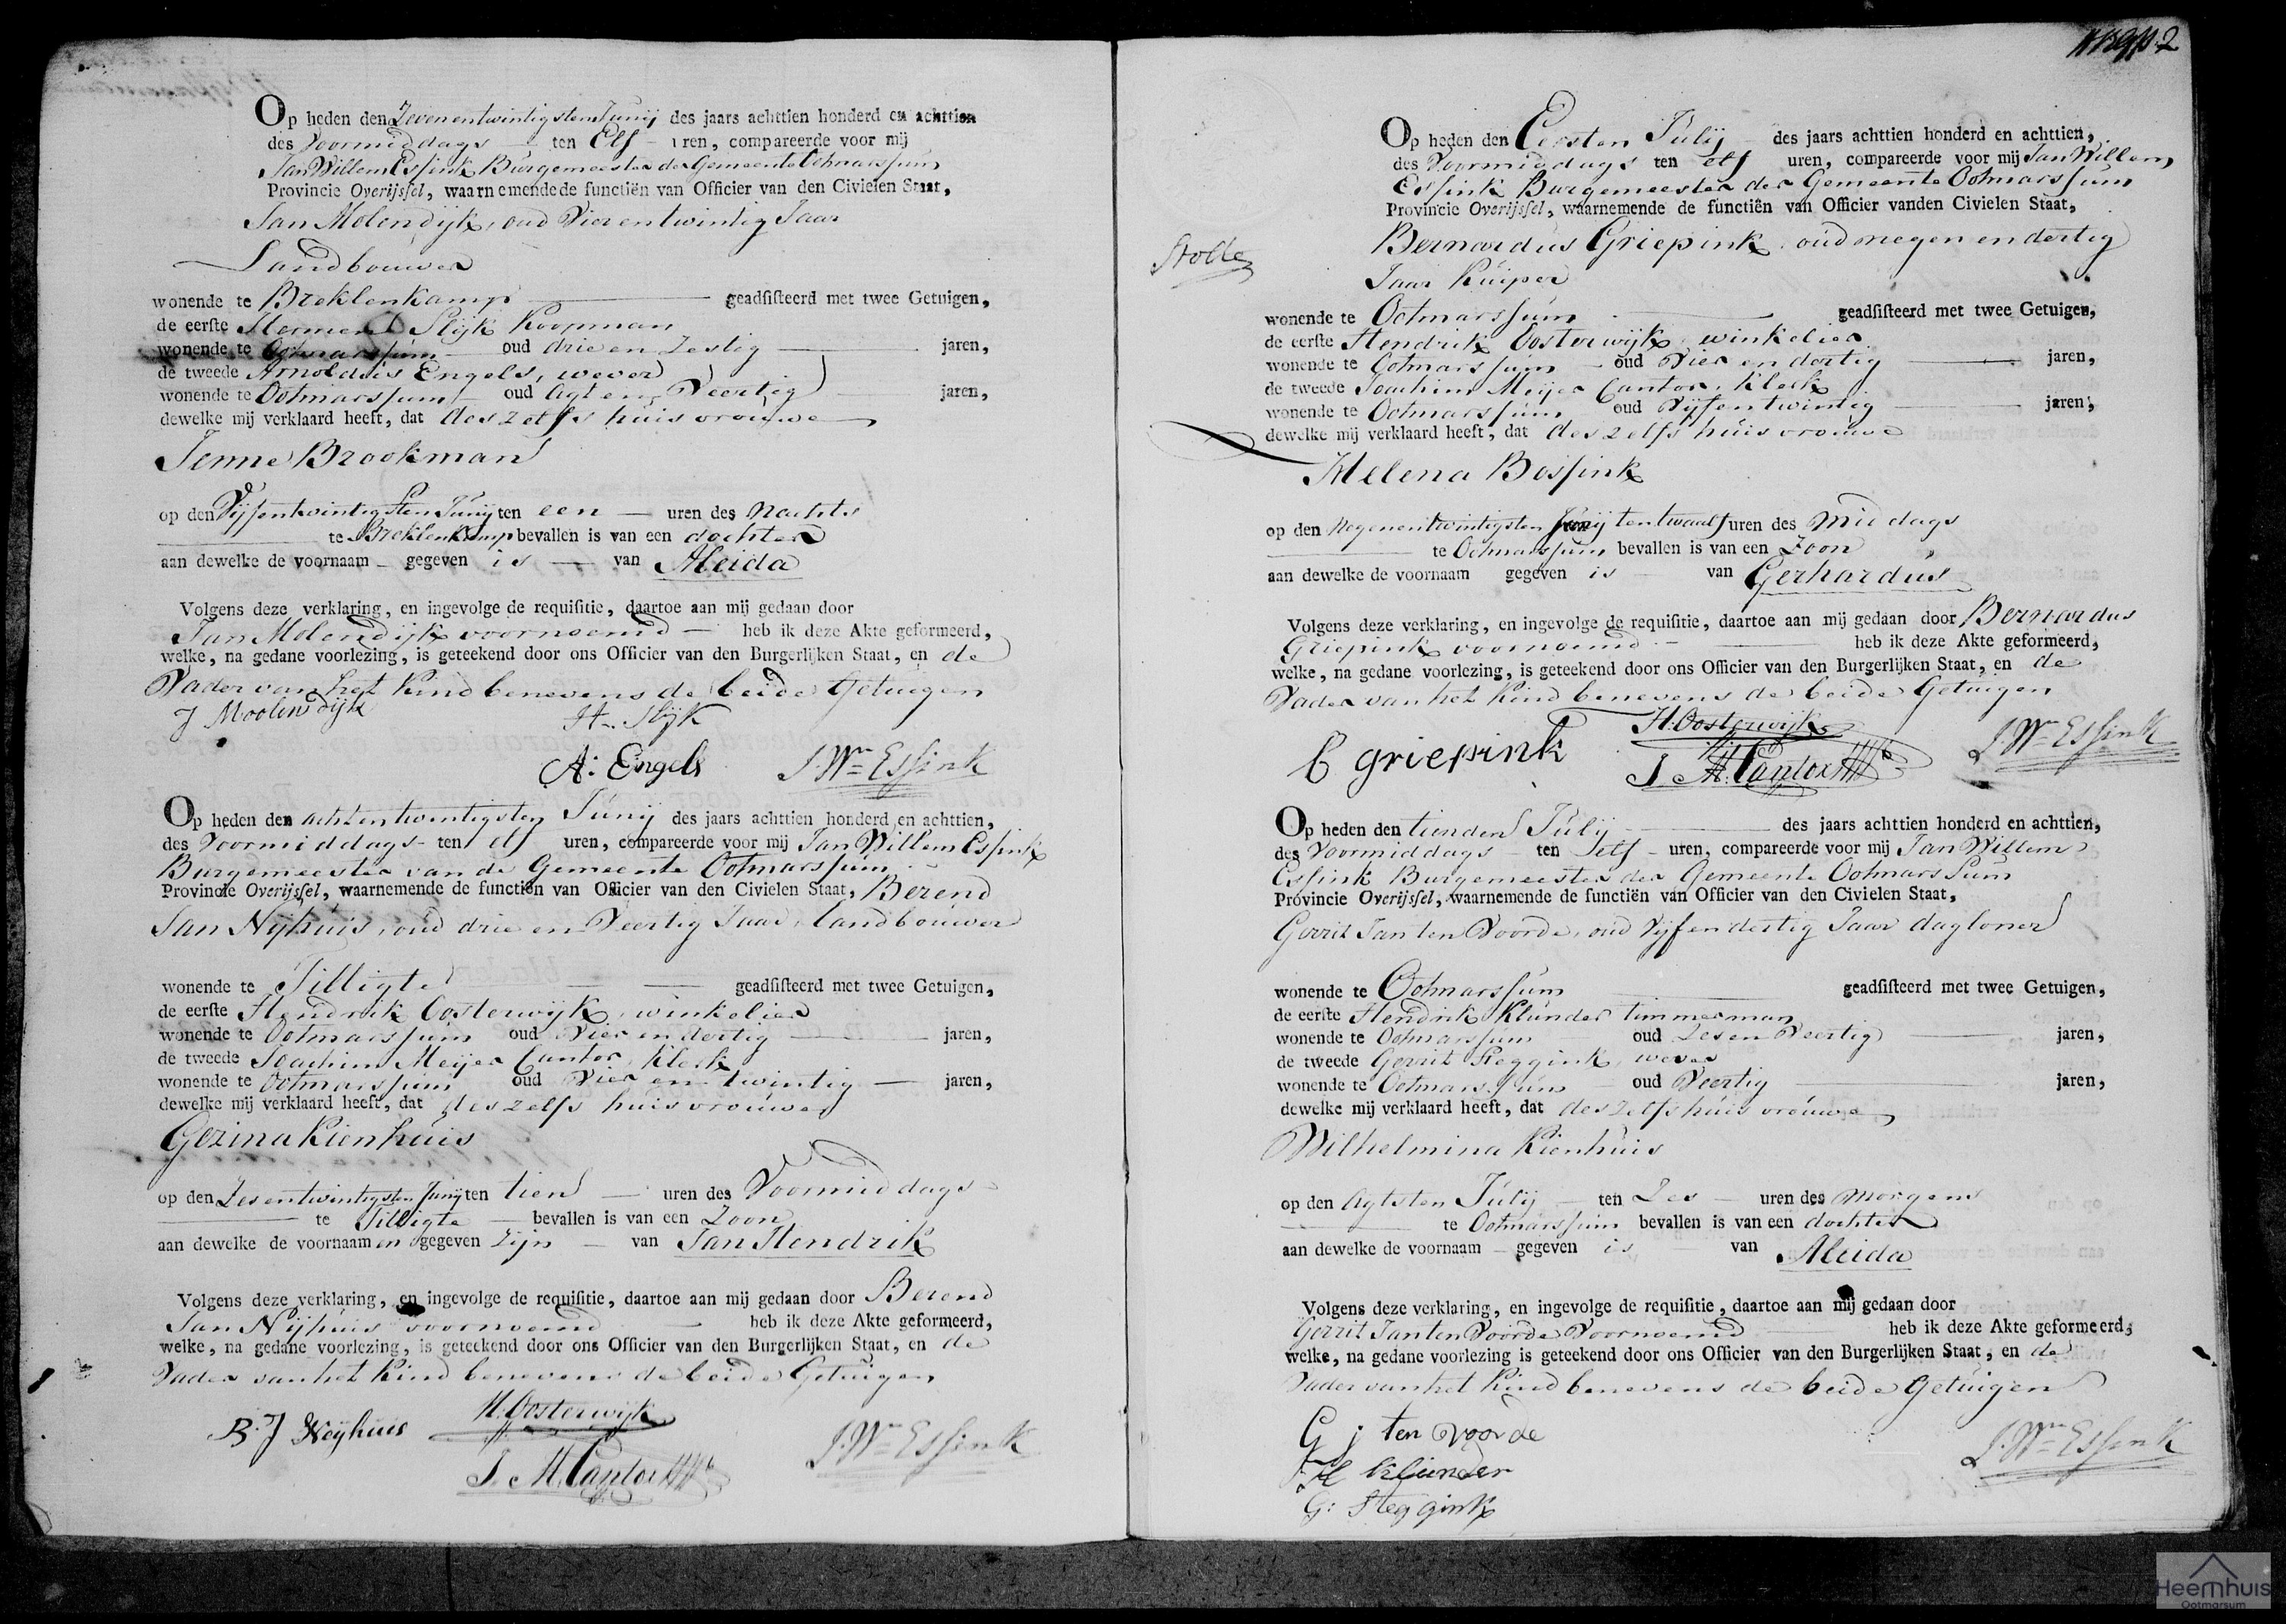 Op heden den Zevenentwintigsten Junij des jaars achttien honderd en achttien
des Voormiddags ten Elf uren, compareerde voor mij
Jan Willem Essink Burgemeester der Gemeente Ootmarssum
Provincie Overijsſel, waarnemende de functiën van Officier van den Civielen Staat,
Jan Molendijk, oud Vier entwintig Jaar
Landbouwer
wonende te Breklenkamp geadſiſteerd met twee Getuigen,
de eerſte Hermen Slijk Koopman
wonende te Ootmarssum oud drie en Zestig jaren,
de tweede Arnoldus Engels, wever
wonende te Ootmarssum oud Agt en Veertig jaren,
dewelke mij verklaard heeft, dat deszelfs huisvrouwe
Jenne Brookman
op den Vijfentwintigsten Junij ten een uren des Nachts
te Breklenkamp bevallen is van een dochter
aan dewelke de voornaam gegeven is van Aleida
Volgens deze verklaring, en ingevolge de requiſitie, daartoe aan mij gedaan door
Jan Molendijk voornoemd heb ik deze Akte geformeerd,
welke, na gedane voorlezing, is geteekend door ons Officier van den Burgerlijken Staat, en de
Vader van het Kind benevens de beide Getuigen
J Moolendijk
H. Slijk
A: Engels J. Wm Essink
Op heden den achtentwintigsten Junij des jaars achttien honderd en achttien,
des Voormiddags ten elf uren, compareerde voor mij Jan Willem Essink
Burgemeester van de Gemeente Ootmarssum
Provincie Overijsſel, waarnemende de functiën van Officier van den Civielen Staat, Berend
Jan Nijhuis, oud drie en Veertig Jaar, landbouwer
wonende te Tilligte geadſiſteerd met twee Getuigen,
de eerſte Hendrik Oosterwijk, winkelier
wonende te Ootmarssum oud Vier en dertig jaren,
de tweede Joachim Meijer Cantor, Klerk
wonende te Ootmarssum oud Vier en twintig jaren,
dewelke mij verklaard heeft, dat deszelfs huisvrouwe
Gezina Kienhuis
op den Zesentwintigsten Junij ten tien uren des Voormiddags
te Tilligte bevallen is van een Zoon
aan dewelke de voornaamen gegeven zijn van Jan Hendrik
Volgens deze verklaring, en ingevolge de requiſitie, daartoe aan mij gedaan door Berend
Jan Nijhuis voornoemd heb ik deze Akte geformeerd,
welke, na gedane voorlezing, is geteekend door ons Officier van den Burgerlijken Staat, en de
Vader van het Kind benevens de beide Getuigen
B. J Neyhuis H: Oosterwijk
J. M. Cantor J. Wm Essink
2
Op heden den Eersten Julij des jaars achttien honderd en achttien,
des Voormiddags ten elf uren, compareerde voor mij Jan Willem
Essink Burgemeester der Gemeente Ootmarssum
Provincie Overijsſel, waarnemende de functiën van Officier vanden Civielen Staat,
Bernardus Griepink, oud negen en dertig
Jaar Kuiper
wonende te Ootmarssum geadſiſteerd met twee Getuigen,
de eerſte Hendrik Oosterwijk, winkelier
wonende te Ootmarssum oud Vier en dertig jaren,
de tweede Joachim Meijer Cantor, Klerk
wonende te Ootmarssum oud Vijfentwintig jaren,
dewelke mij verklaard heeft, dat deszelfs huisvrouwe
Helena Bossink
op den Negenentwintigsten Junij ten twaalf uren des Middags
te Ootmarssum bevallen is van een Zoon
aan dewelke de voornaam gegeven is van Gerhardus
Volgens deze verklaring, en ingevolge de requiſitie, daartoe aan mij gedaan door Bernardus
Griepink voornoemd heb ik deze Akte geformeerd,
welke, na gedane voorlezing, is geteekend door ons Officier van den Burgerlijken Staat, en de
Vader van het Kind benevens de beide Getuigen
B griepink H: Oosterwijk J. Wm Essink
J. M. Cantor
Op heden den tienden Julij des jaars achttien honderd en achttien,
des Voormiddags ten elf uren, compareerde voor mij Jan Willem
Essink Burgemeester der Gemeente Ootmarssum
Provincie Overijsſel, waarnemende de functiën van Officier van den Civielen Staat,
Gerrit Jan ten Voorde, oud Vijfendertig Jaar dagloner
wonende te Ootmarssum geadſiſteerd met twee Getuigen,
de eerſte Hendrik Klunder timmerman
wonende te Ootmarssum oud Zes en Veertig jaren,
de tweede Gerrit Steggink, wever
wonende te Ootmarssum oud Veertig jaren,
dewelke mij verklaard heeft, dat deszelfs huisvrouwe
Wilhelmina Kienhuis
op den Agtsten Julij ten Zes uren des Morgens
te Ootmarssum bevallen is van een dochter
aan dewelke de voornaam gegeven is van Aleida
Volgens deze verklaring, en ingevolge de requiſitie, daartoe aan mij gedaan door
Gerrit Jan ten Voorde Voornoemd heb ik deze Akte geformeerd,
welke, na gedane voorlezing is geteekend door ons Officier van den Burgerlijken Staat, en de
Vader van het Kind benevens de beide Getuigen
G j ten voorde
H klunder J. Wm Essink
G: Steggink
Heemhuis
Ootmarsum